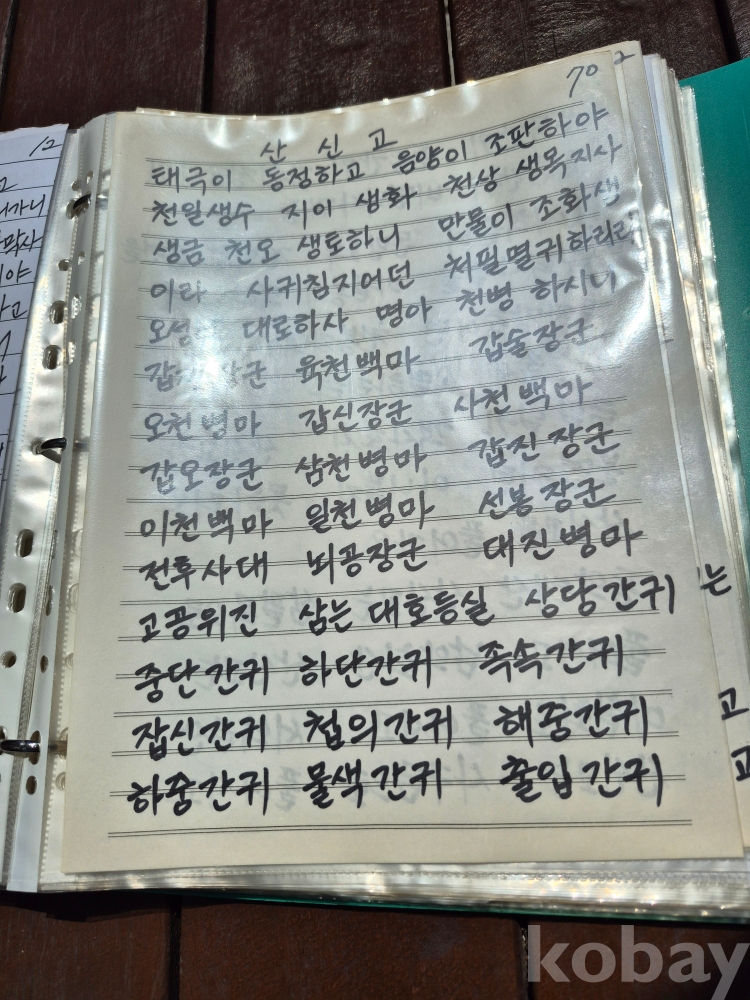 70
산 신 고
태극이 동정하고 음양이 조판하야
천일생수 지이 생화 천상 생목지사
생금 천오 생토하니 만물이 조화생
이라 사귀침지어던 처필멸귀하리라
오성 대로하사 명아 천병 하시니
장군 육천백마 갑술장군
오천병마 갑신장군 사천백마
갑오장군 삼천병마 갑진장군
이천백마 일천병마 선봉장군
전후사대 뇌공장군 대진병마
고공위진 삼는 대호등실 상당간귀
중단간귀 하단간귀 족속간귀
잡신간귀 첩의간귀 해중간귀
하중간귀 물색간귀 출입간귀
12
고
가니
야
하고
2
는
고
고
kobay